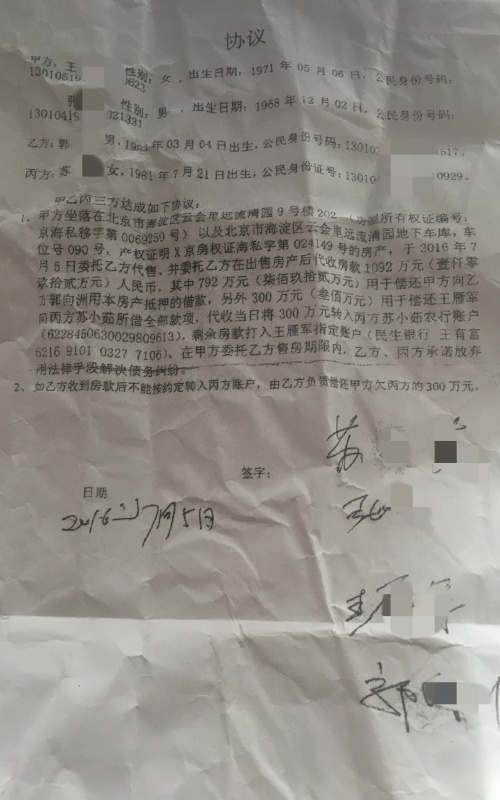 协议
甲方：王 性别：女，出生日期：1971年05月06日，公民身份号码：
13010619 0623
张 性别：男，出生日期：1968年12月02日，公民身份号码：
13010419 021331
乙方：郭 男，1983年03月04日出生，公民身份号码：13010 617。
丙方：苏 女，1981年7月21日出生，公民身份证号：13010 0929。
甲乙丙三方达成如下协议：
1、甲方坐落在北京市海淀区云会里远流清园9号楼202（房屋所有权证编号：
京海私移字第0069259号）以及北京市海淀区云会里远流清园地下车库，车
位号090号，产权证明X京房权证海私字第024149号的房产，于2016年7
月5日委托乙方代售、并委托乙方在出售房产后代收房款1092万元（壹仟零
玖拾贰万元）人民币，其中792万元（柒佰玖拾贰万元）用于偿还甲方向乙
方郭向洲用本房产抵押的借款，另外300万元（叁佰万元）用于偿还王雁军
向丙方苏小茹所借全部款项，代收当日将300万元转入丙方苏小茹农行账户
(6228450630029809613)，剩余房款打入王雁军指定账户（民生银行 王有富
6216 9101 0327 7106）。在甲方委托乙方售房期限内，乙方、丙方承诺放弃
用法律手段解决债务纠纷。
2、如乙方收到房款后不能按约定转入丙方账户，由乙方负责偿还甲方欠丙方的300万元。
苏
签字：
日期
2016年7月5日
王
郭